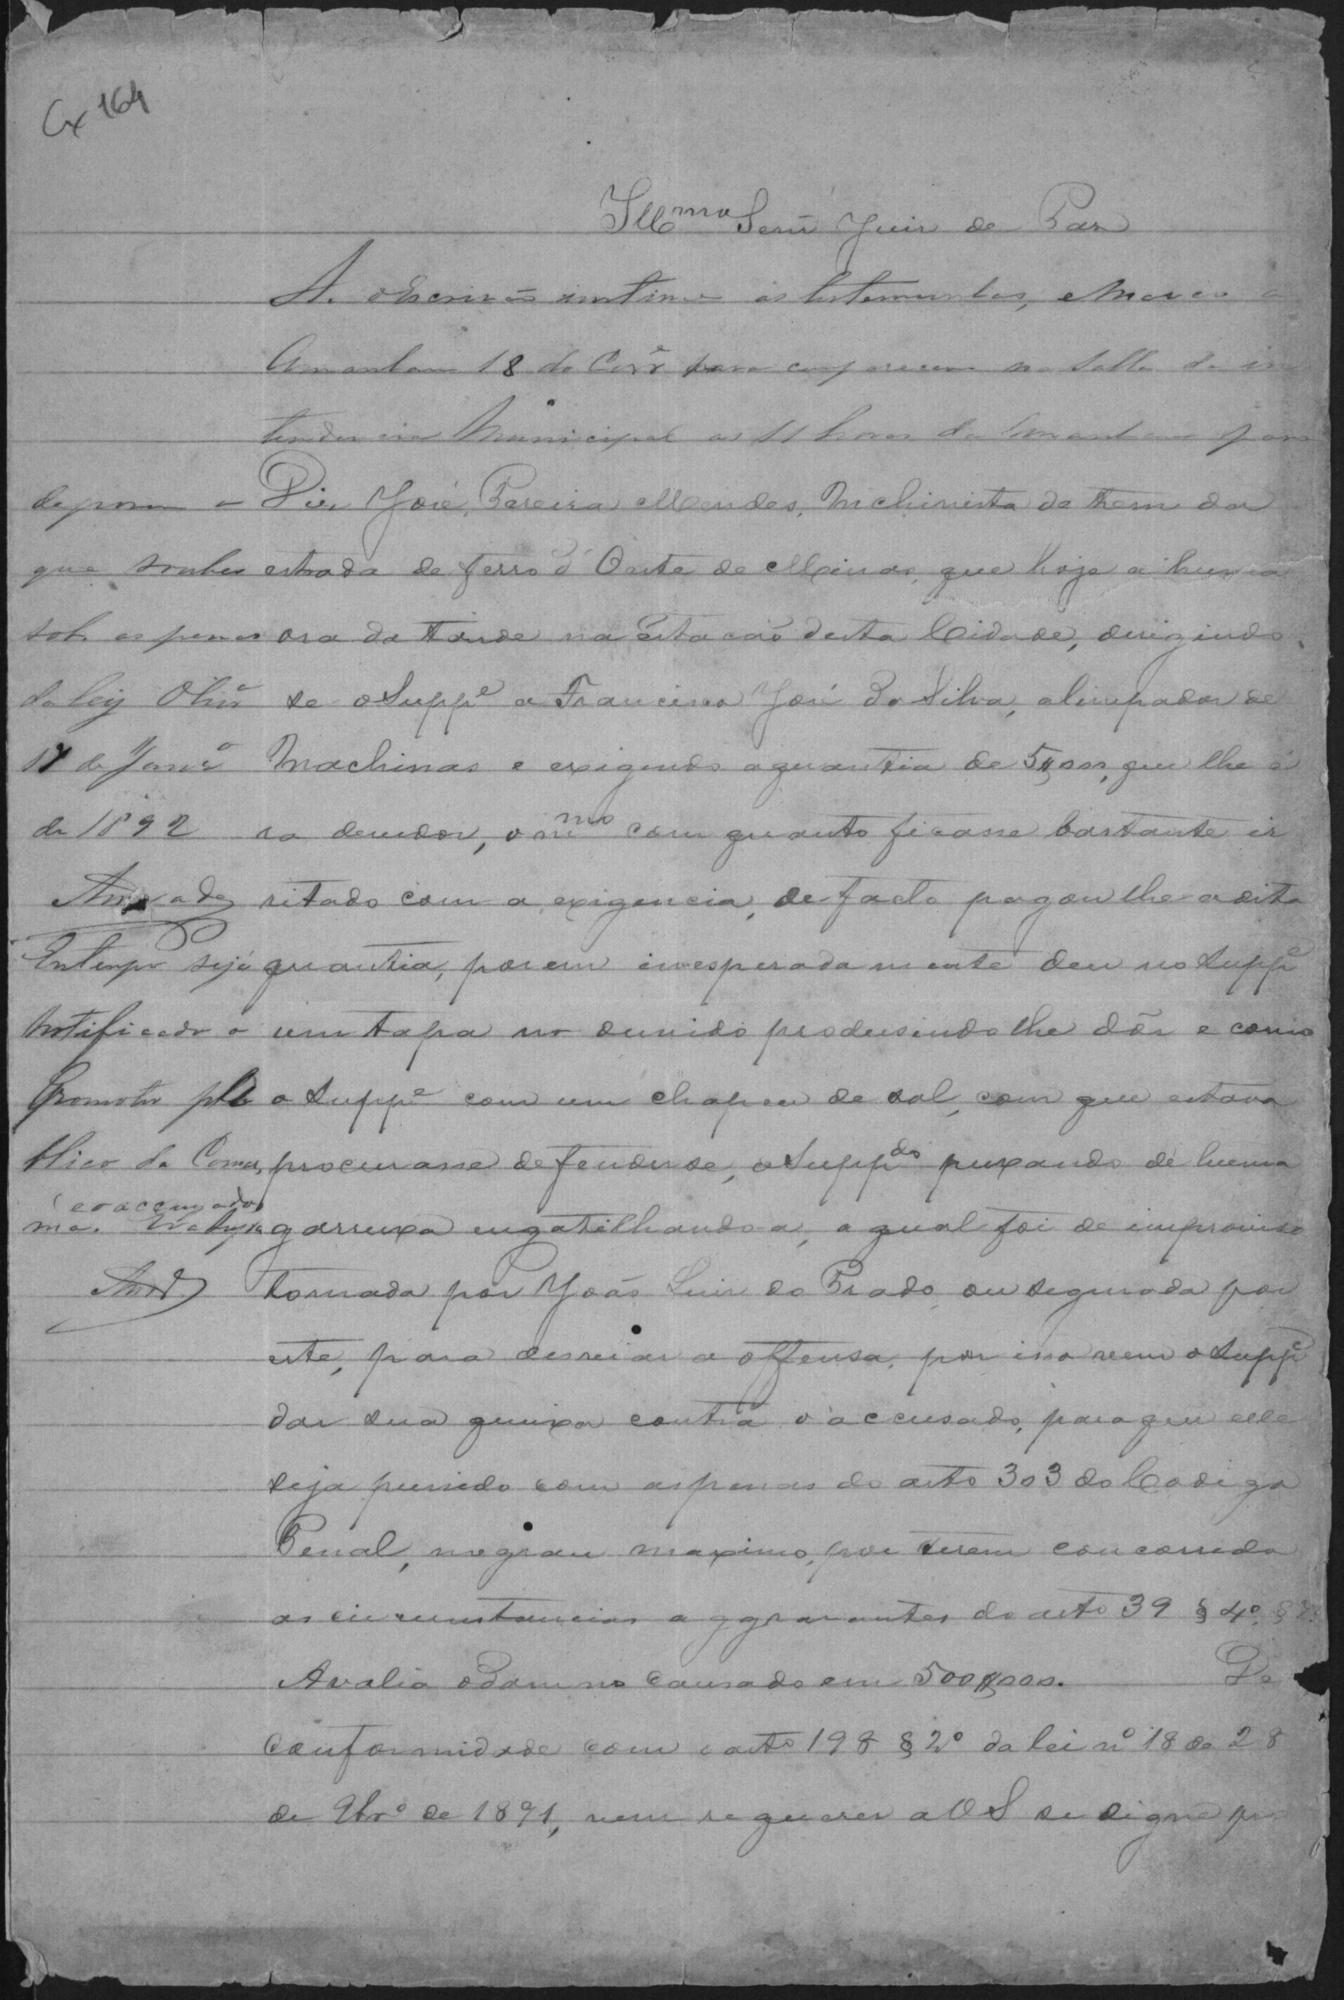 Cx 164
Illmo Senr Juiz de Paz
A. o Escrivão intime as testemunhas, e marco o
Amanham 18 do Corre para comparecerem na Salla da in
tendencia Municipal as 11 horas da manham para
deporem o
que souber
sob as penas
da ley Olivra
17 de Janro
de 1892
Andrade
Em tempo seja
notificado o
Promotor pu
blico da Comar
ca e o accusado
Andr
Diz José Pereira Mendes, Machinista do trem da
estrada de ferro d'Oeste de Minas, que hoje a huma
ora da tarde na Estacão desta Cidade, dirigindo
se o Suppe a Francisco José da Silva, alimpador de
Machinas e exigindo a quantia de 5$000, que lhe é
ra devedor, o mmo com quanto ficasse bastante ir
ritado com a exigencia, de facto pagou lhe a dita
quantia, porem inesperadamente deu no Suppe
um tapa no ouvido produsindo lhe dôr e como
o Suppe com um chapeu de sol, com que estava
procurasse defender se, o Suppdo puxando de huma
garruxa engatilhando a, a qual foi de improviso
tomada por João Luiz do Prado, ou segurada por
este, para desviar a offensa, por isso vem o Suppe
dar sua queixa contra o accusado, para que elle
seja punido com as penas do arto 303 do Codigo
Penal, no grau maximo, por terem concorrido
as circumstancias aggravantes do arto 39 § 4º §
Avalia o Damno causado em 500$000. De
conformidade com o arto 198 § 2º da lei nº 18 de 28
de 9bro de 1891, vem requerer a VS se digne